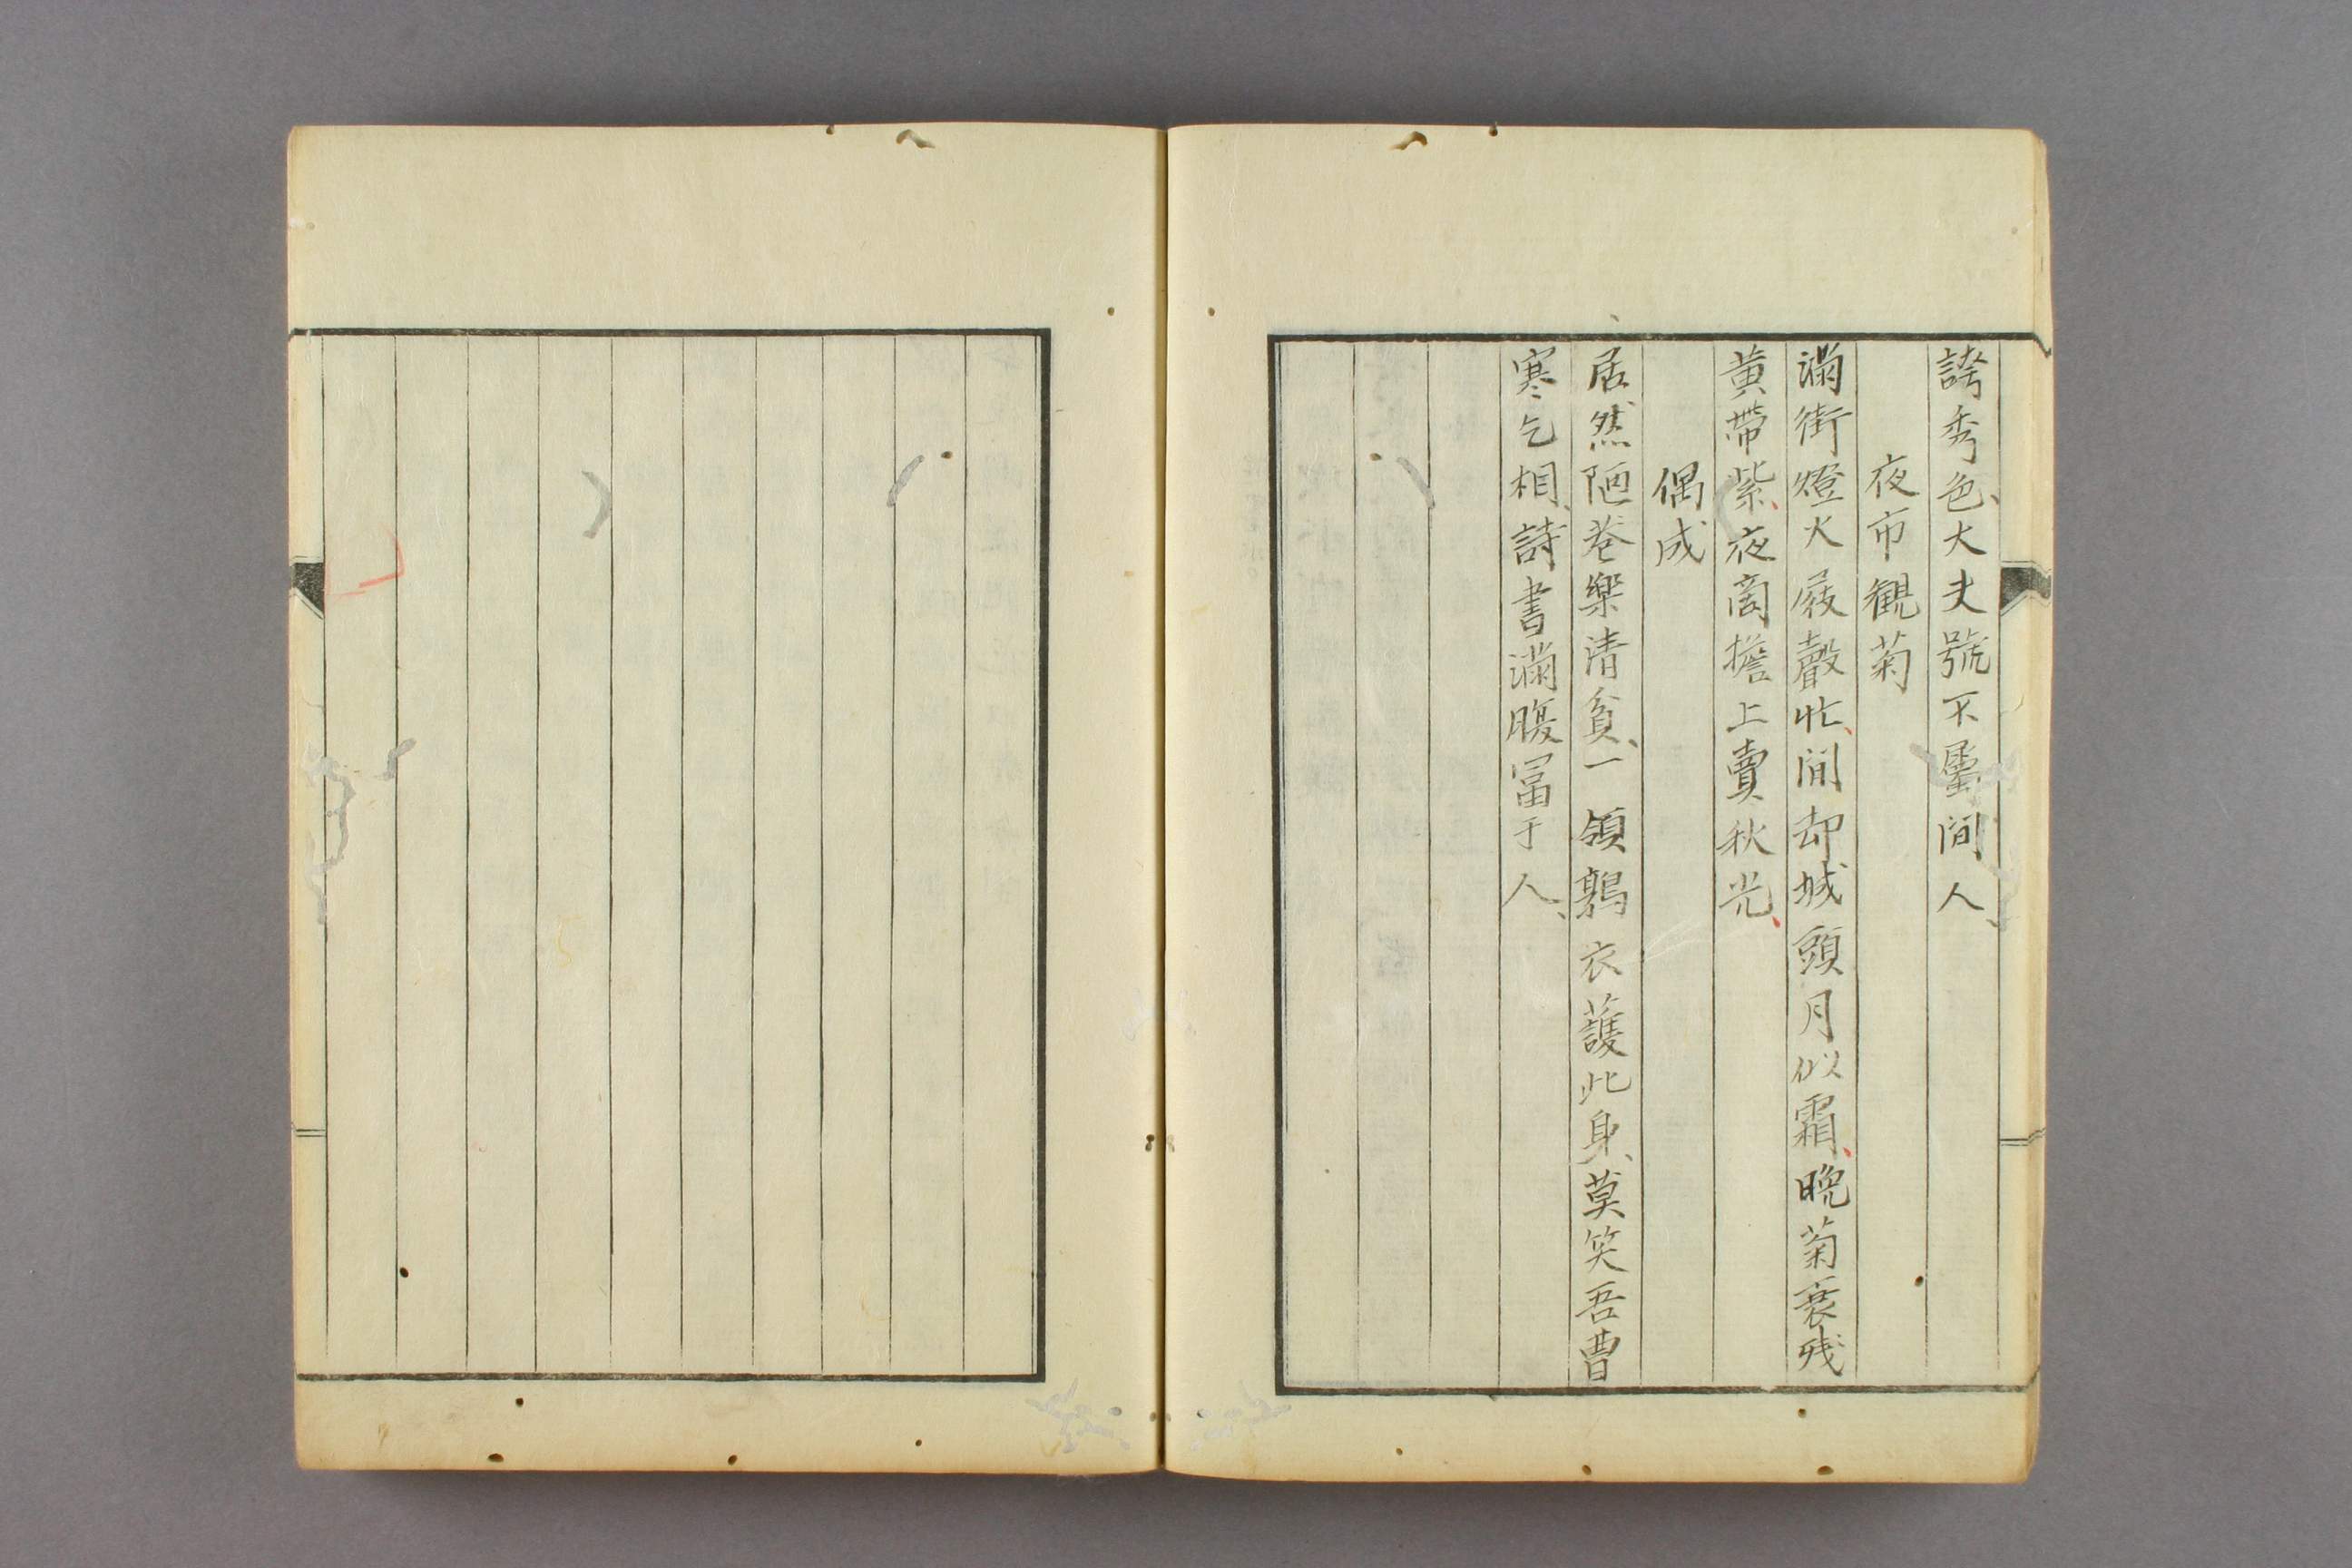 誇秀色、大夫號不屬間人、
夜市観菊
満街燈火屐聲忙、間却城頭月似霜、晩菊衰残
黄帶紫、夜商擔上賣秋光、
偶成
居然陋巷樂清貧、一領鶉衣護此身、莫笑吾曹
寒乞相、詩書満腹冨于人、